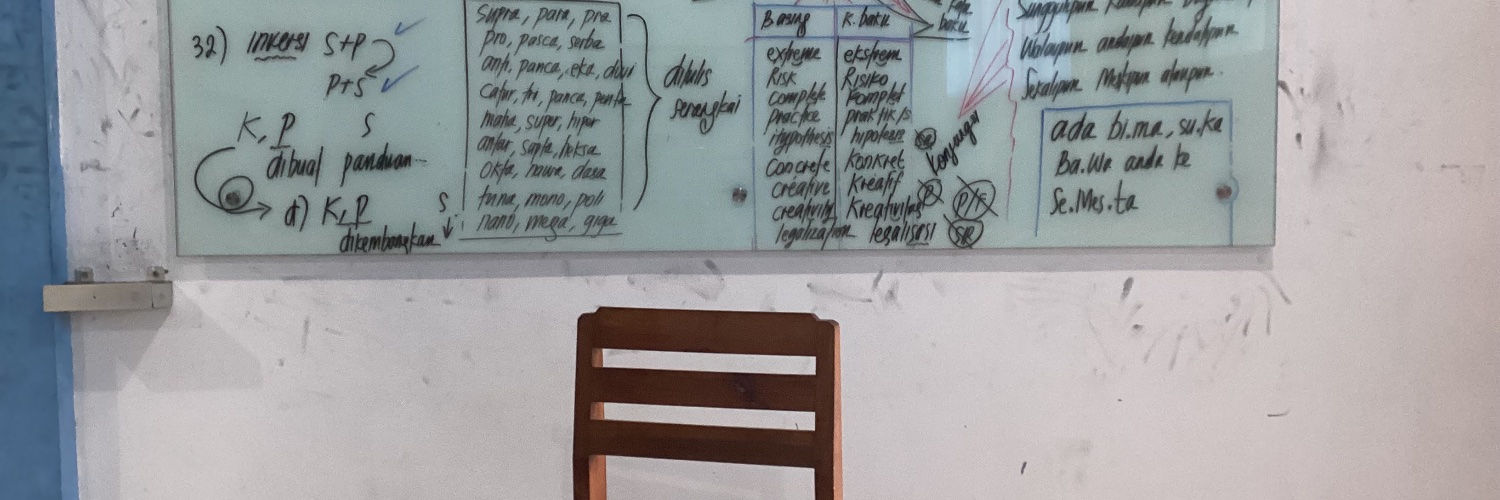 32) Inversi S+P
P+S
K, P S
dibuat panduan...
d) K, P S
dikembangkan
Supra, para, pra
pro, pasca, serba
anti, panca, eka, dwi
catur, tri, panca, penta
maha, super, hiper
antar, sapta, heksa
Okta, nawa, dasa
tuna, mono, poli
nano, mega, giga
ditulis
serangkai
Basing K. baku
extreme ekstrem
Risk Risiko
Complete Komplet
Practice praktik/s
Hypothesis hipotesis
Concrete Konkret
creative Kreatif
creativity Kreativitas
legalization legalisasi
baku
Konjungsi
P
P/F
Sungguhpun
Walaupun andaipun kendatipun
Sekalipun Meskipun ataupun.
ada bi.ma, su.ka
Ba.Wa anda ke
Se.Mes.ta